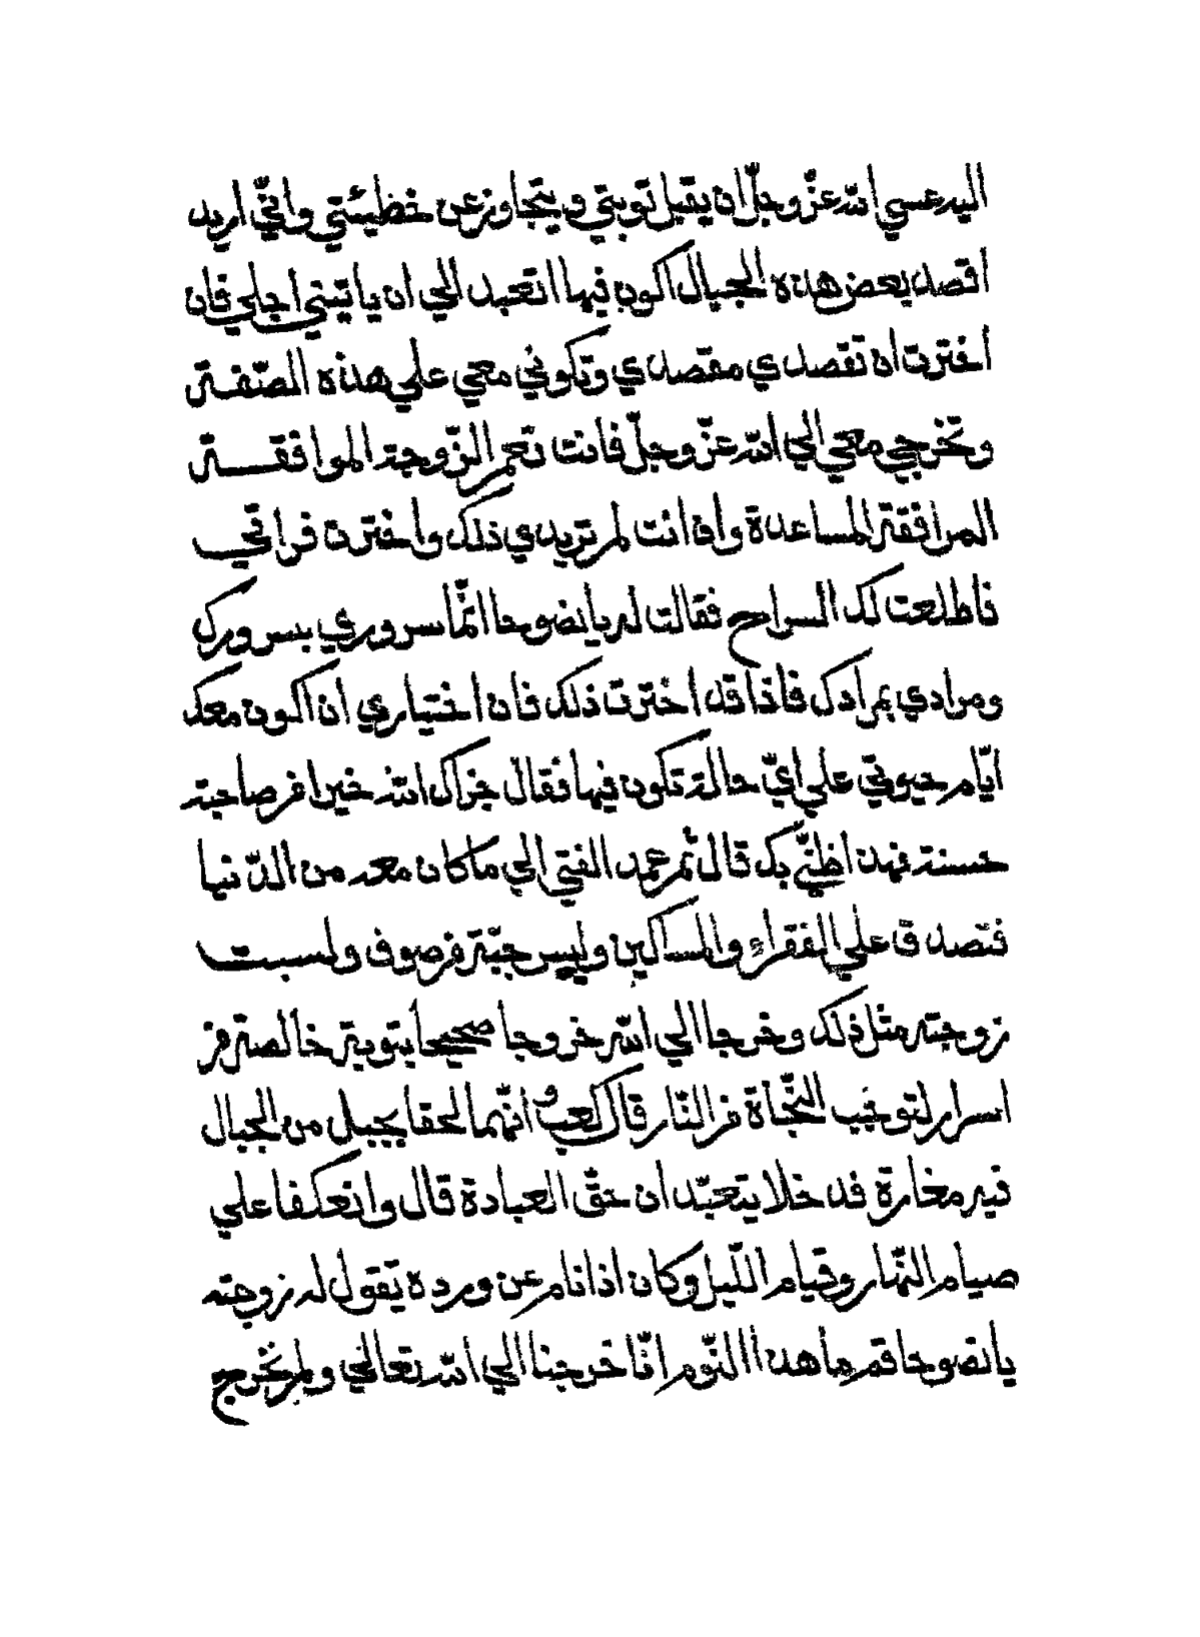 اليه عسي الله عزّ وجلّ ان يقبل توبتي ويتجاوز عن خطيئتي وانّي اريد
اقصد بعض هذه الجبال اكون فيها اتعبد الي ان ياتيني اجلي فان
اخترت ان تقصدي مقصدي وتكوني معي علي هذه الصّفة
وتخرجي معي الي الله عزّ وجلّ فانت نعم الزّوجة الموافقة
المرافقة المساعدة وان انت لم تريدي ذلك واخترت فراقي
فاطلعت لك السراح فقالت له يا نضوحا انّما سروري بسرورك
ومرادي بمرادك فاذا قد اخترت ذلك فان اختياري ان اكون معك
ايّام حيوتي علي ايّ حالة تكون فيها فقال جزاك الله خيرا فر صاحبة
حسنة فهذا ظنّي بك قال ثم عمد الفتي الي ما كان معه من الدّنيا
فتصدق علي الفقراءِ والمساكين ولبس جبّة فر صوف ولبست
زوجته مثل ذلك وخرجا الي الله خروجا صحيحا بتوبة خالصة فر
اسرار لتوجب النّجاة فر النّار قال كعبٌ انّهما لحقا بجبل من الجبال
فيه مغارة فدخلا يتعبّدان حقّ العبادة قال وانعكفا علي
صيام النّهار وقيام اللّيل وكان اذا نام عن ورده تقول له زوجته
يا نضوحا قم ما هذا النّوم انّا خرجنا الي الله تعالي ولم نخرج